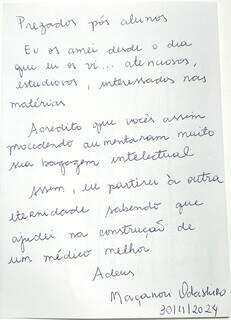 Prezados pós alunos
Eu os amei desde o dia
que eu os vi... atenciosos,
estudiosos, interessados nas
matérias.
Acredito que vocês assim
procedendo aumentaram muito
sua bagagem intelectual
Assim, eu partirei à outra
eternidade sabendo que
ajudei na construção de
um médico melhor
Adeus
30/11/2024